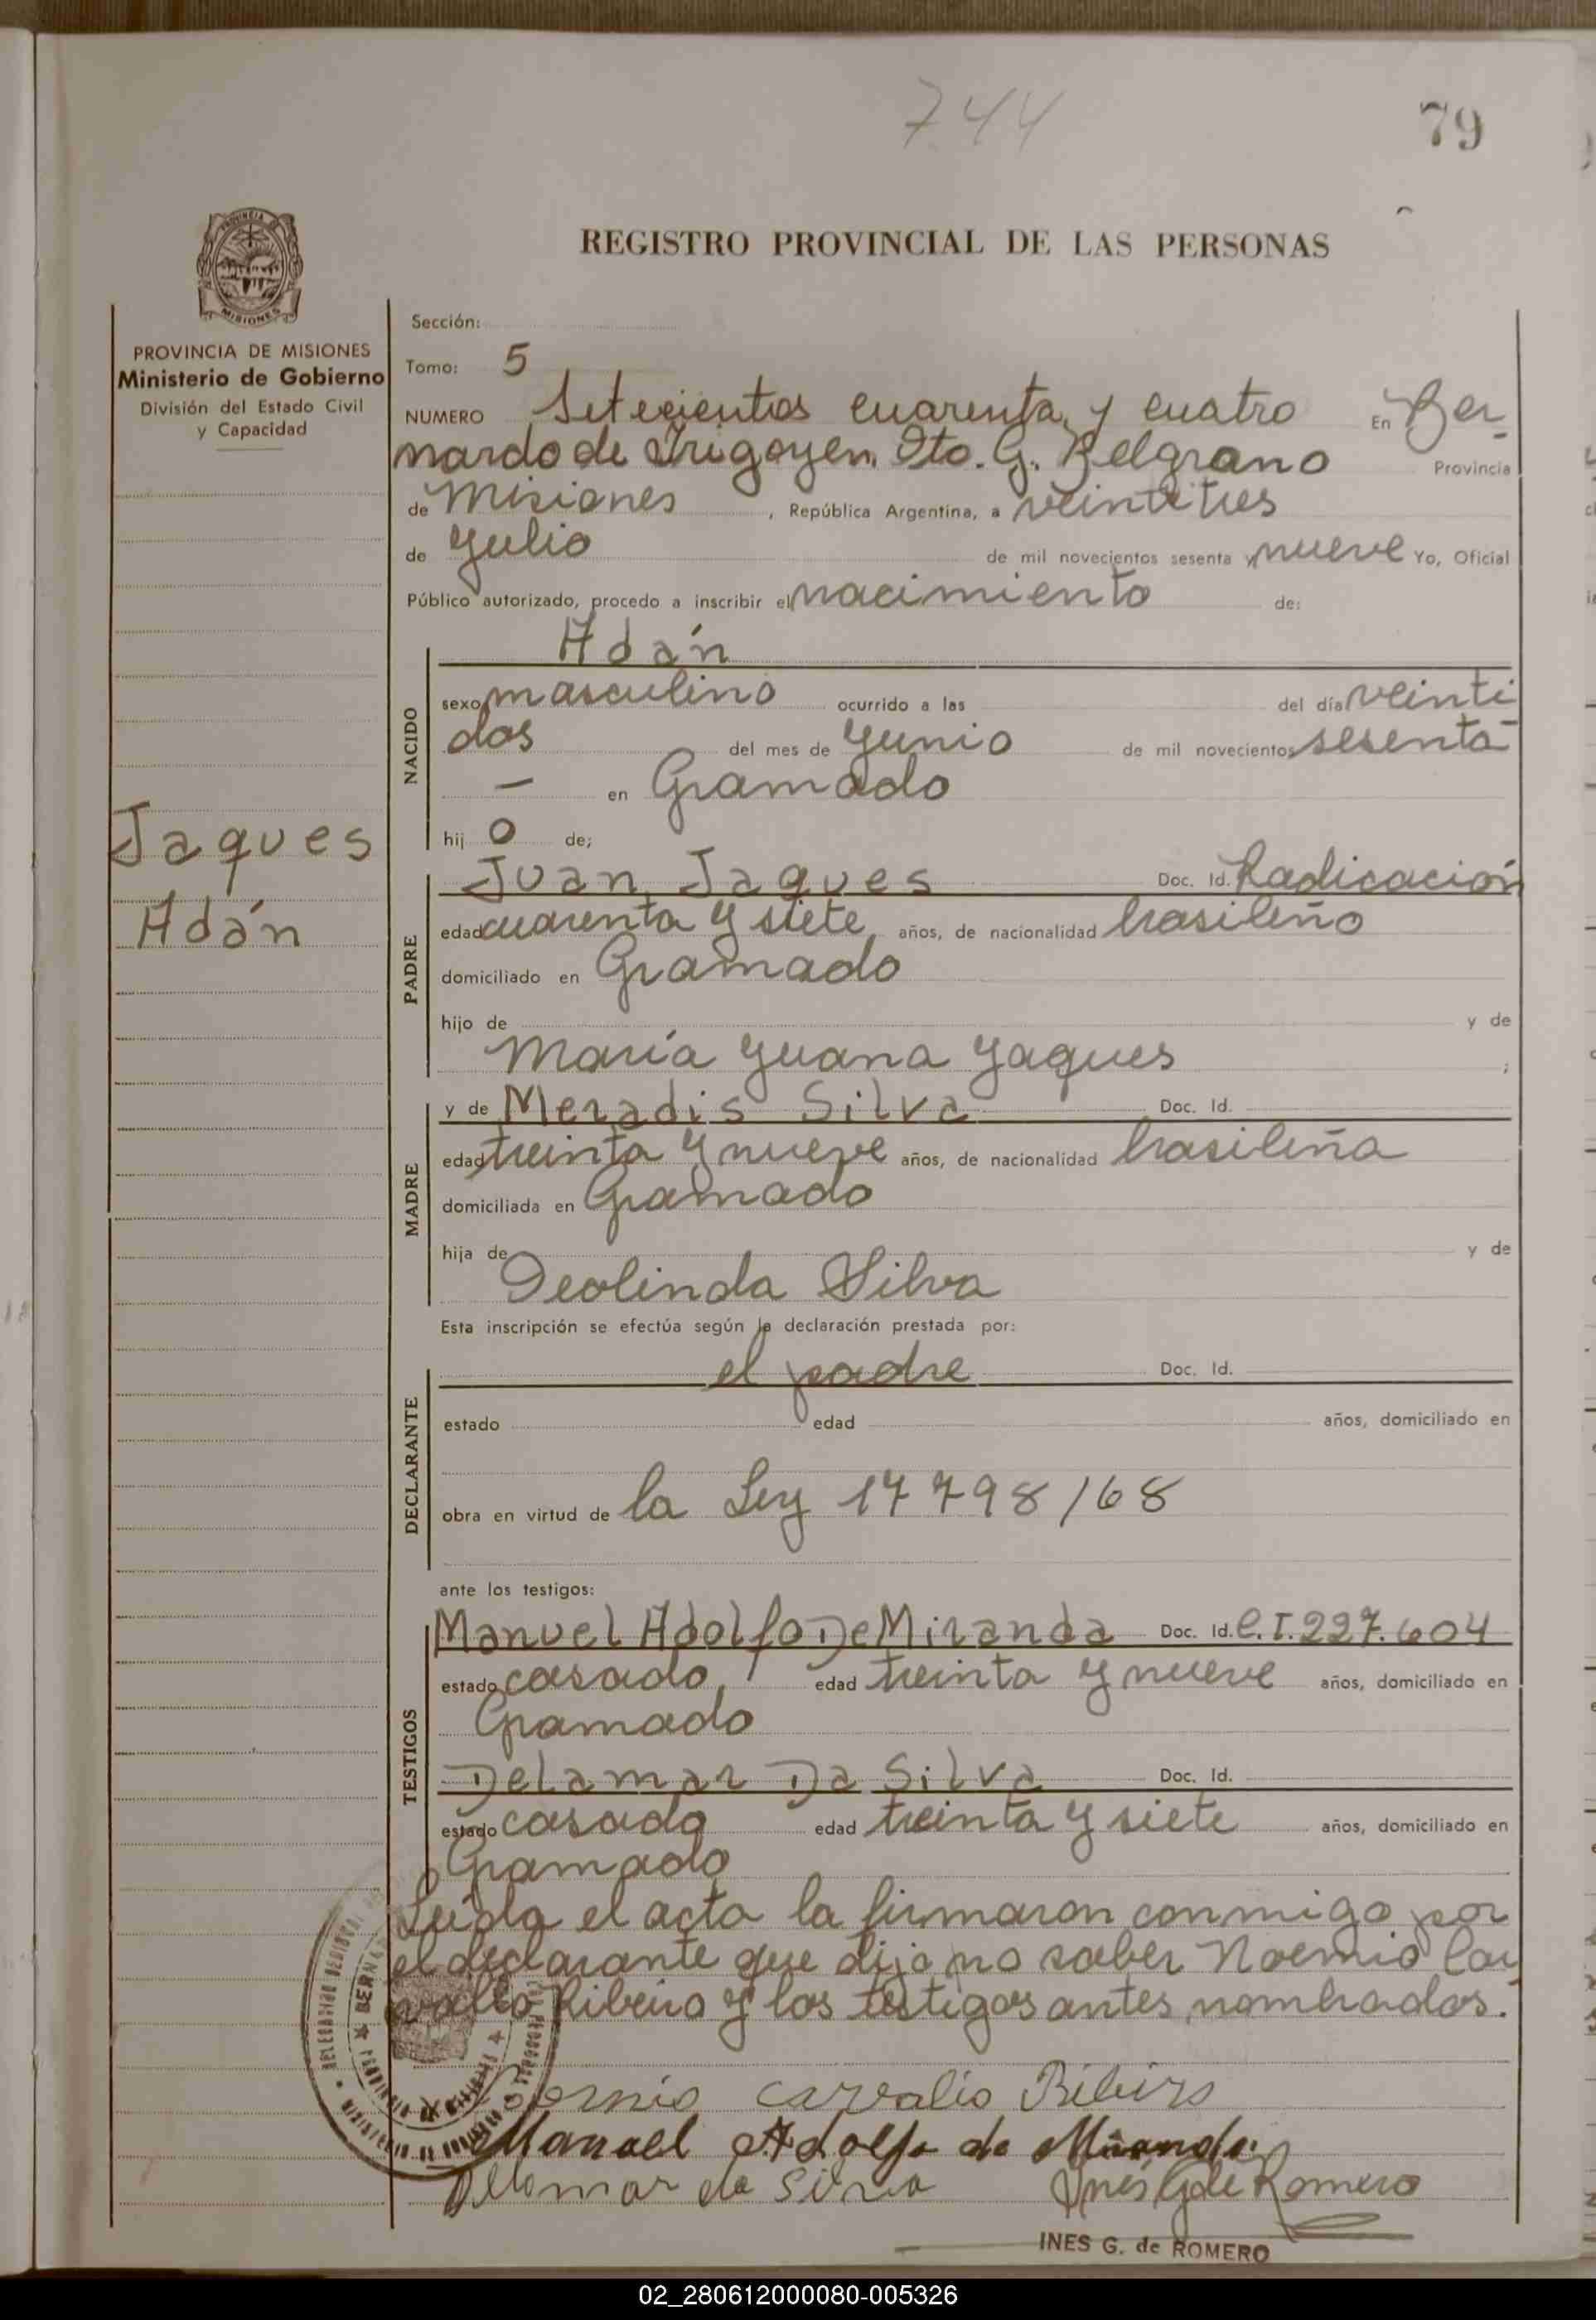 744
79
REGISTRO PROVINCIAL DE LAS PERSONAS
PROVINCIA DE MISIONES
Ministerio de Gobierno
División del Estado Civil
y Capacidad
Sección:
Tomo: 5
NUMERO Setecientos cuarenta y cuatro En Ber
nardo de Irigoyen, Dto. G. Belgrano Provincia
de Misiones, República Argentina, a veintitres
de Julio de mil novecientos sesenta y nueve Yo, Oficial
Público autorizado, procedo a inscribir el nacimiento de:
Adán
NACIDO
sexo masculino ocurrido a las del día veinti
dos del mes de Junio de mil novecientos sesenta
— en Gramado
hij o de;
Jaques
Adán
PADRE
Juan Jaques Doc. Id. Radicación
edad cuarenta y siete años, de nacionalidad brasileño
domiciliado en Gramado
hijo de y de
María Juana Jaques ;
MADRE
y de Meradis Silva Doc. Id.
edad treinta y nueve años, de nacionalidad brasileña
domiciliada en Gramado
hija de y de
Deolinda Silva
Esta inscripción se efectúa según la declaración prestada por:
DECLARANTE
el padre Doc. Id.
estado edad años, domiciliado en
obra en virtud de la Ley 17798/68
ante los testigos:
TESTIGOS
Manuel Adolfo De Miranda Doc. Id. C.I. 227.604
estado casado, edad treinta y nueve años, domiciliado en
Gramado
Delamar Da Silva Doc. Id.
estado casado edad treinta y siete años, domiciliado en
Gramado
Leída el acta la firmaron conmigo por
el declarante que dijo no saber Noemio Car
vallo Ribeiro y los testigos antes nombrados.
Carvalio Ribeiro
Manoel Adolfo de Miranda
Dellamar da Silva Inés G de Romero
INES G. de ROMERO
02_280612000080-005326